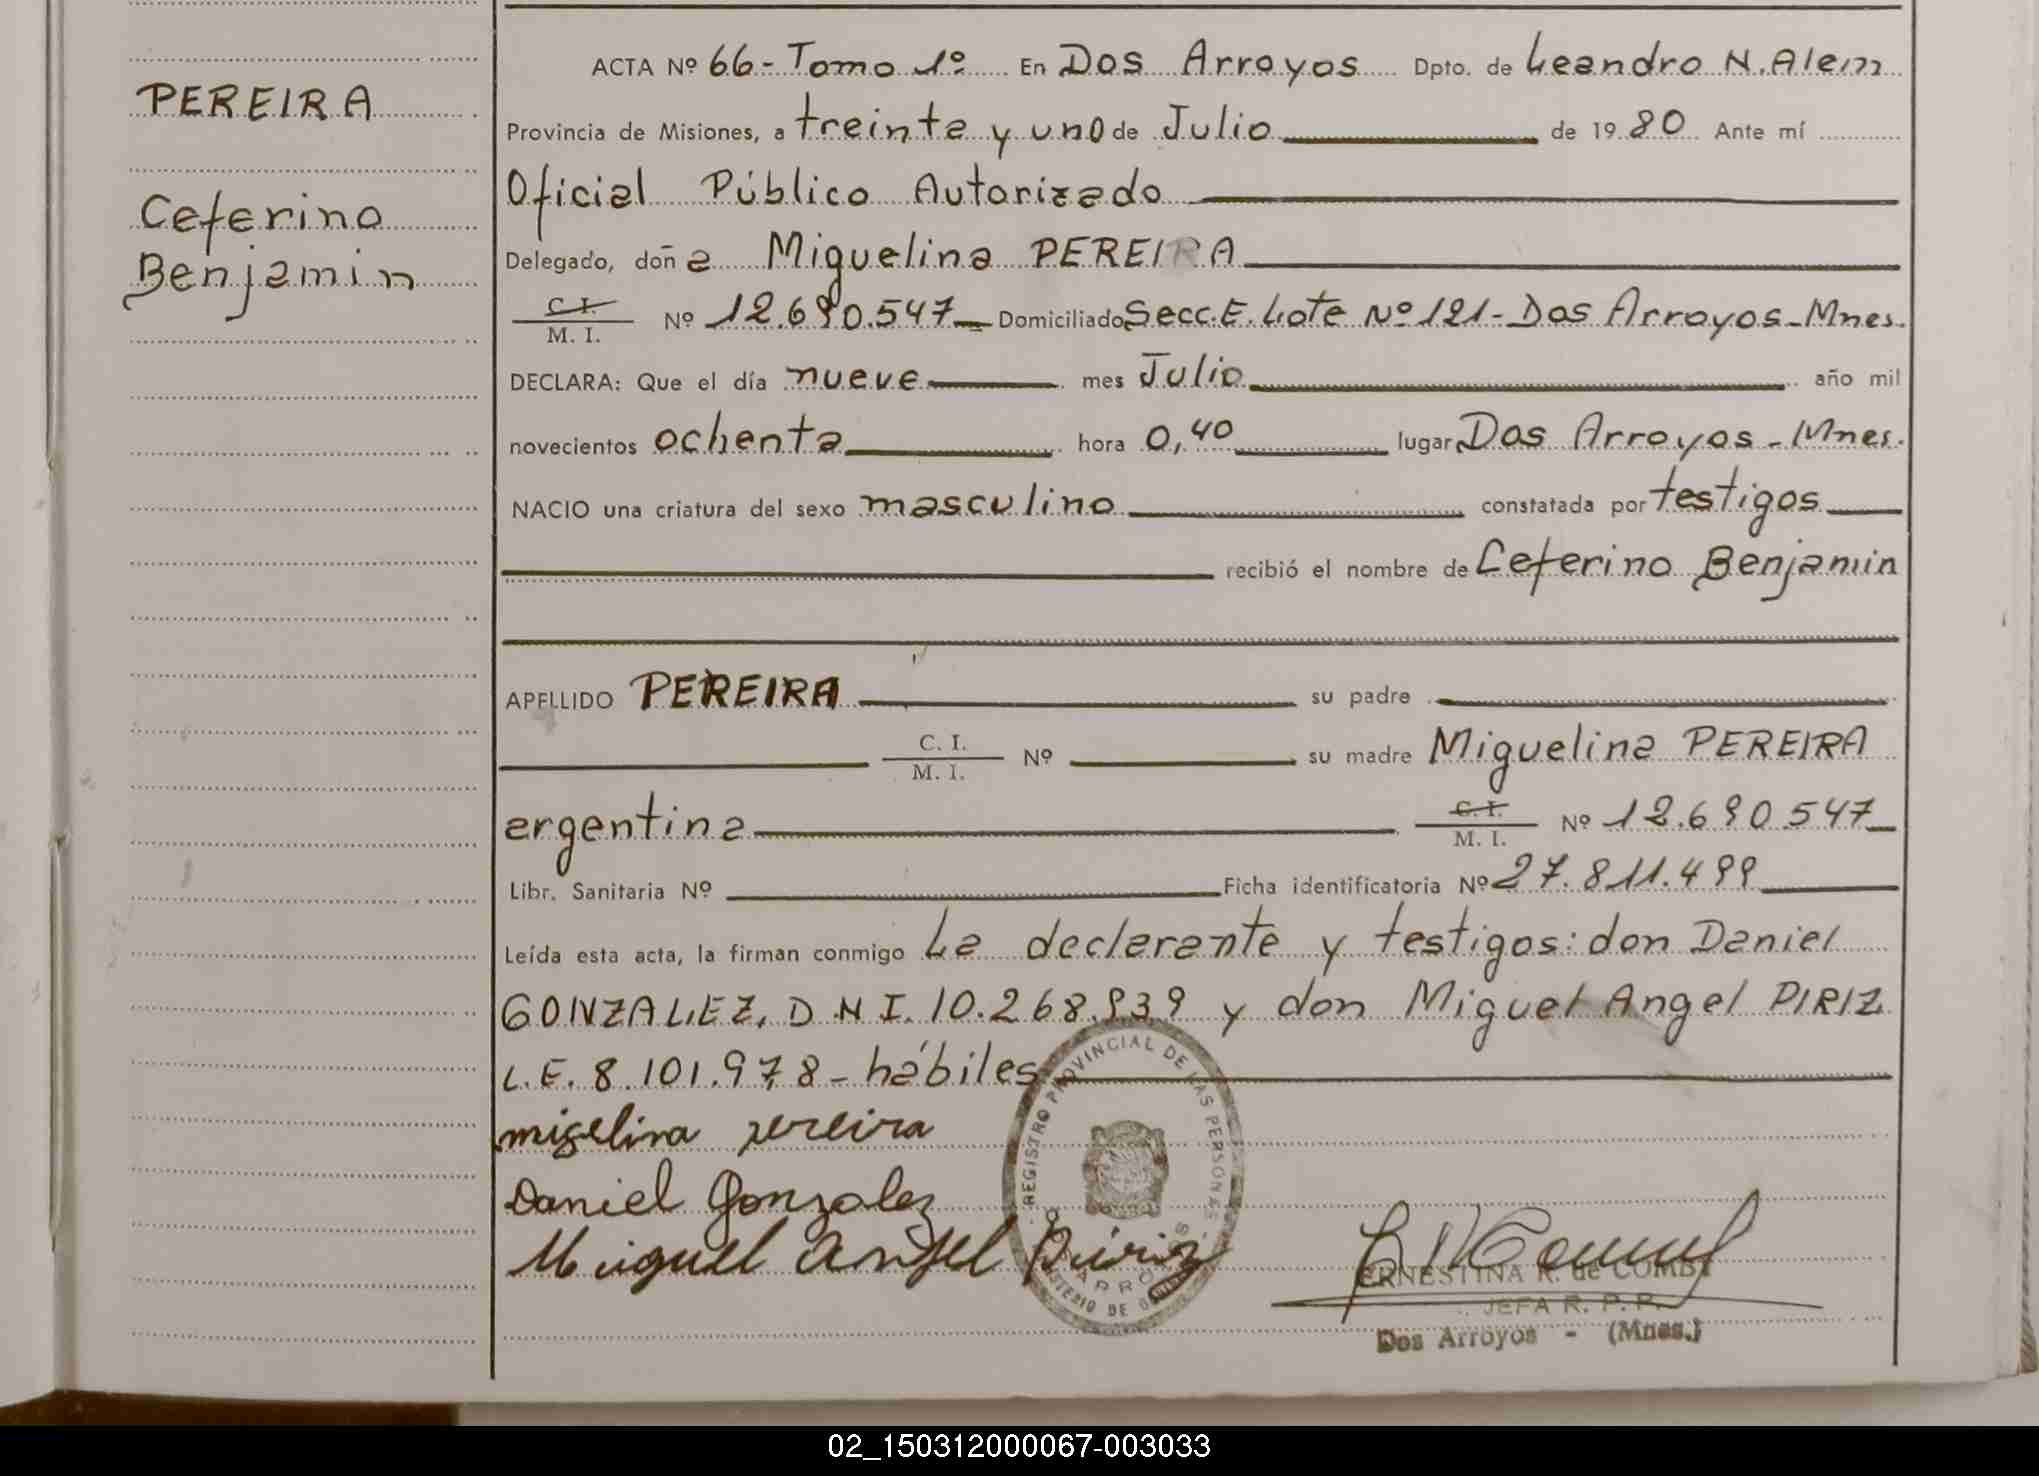 PEREIRA
Ceferino
Benjamin
ACTA Nº 66-Tomo 1º En Dos Arroyos Dpto. de Leandro N. Alem
Provincia de Misiones, a treinta y uno de Julio de 1980 Ante mí
Oficial Público Autorizado
Delegado, doña Miguelina PEREIRA
C. I.
M. I. Nº 12.690.547 Domiciliado Secc. E. Lote Nº 121-Dos Arroyos-Mnes.
DECLARA: Que el día nueve mes Julio año mil
novecientos ochenta hora 0,40 lugar Dos Arroyos-Mnes.
NACIO una criatura del sexo masculino constatada por testigos
recibió el nombre de Ceferino Benjamin
APELLIDO PEREIRA su padre
C. I.
M. I. Nº su madre Miguelina PEREIRA
argentina C. I.
M. I. Nº 12.690.547
Libr. Sanitaria Nº Ficha identificatoria Nº 27.811.499
Leída esta acta, la firman conmigo La declarante y testigos: don Daniel
GONZALEZ, D.N.I. 10.268.939 y don Miguel Angel PIRIZ
L.E. 8.101.978-hábiles
migelina pereira
Daniel Gonzalez
Miguel Angel Piriz
REGISTRO PROVINCIAL DE LAS PERSONAS
ERNESTINA R. de COMBE
JEFA R. P. P.
Dos Arroyos - (Mnes.)
02_150312000067-003033